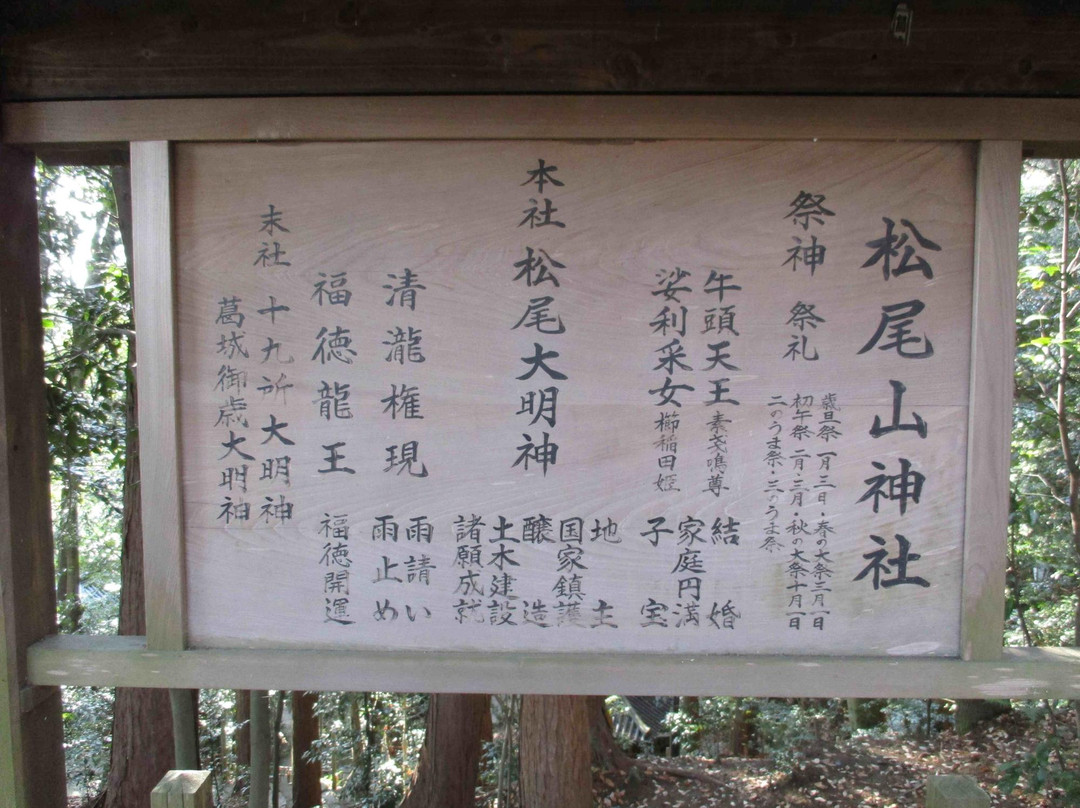 松尾山神社
祭神 祭礼
歳旦祭 一月三日・春の大祭三月一日
初午祭 二月・三月・秋の大祭十月一日
二のうま祭・三のうま祭
牛頭天王 素戔鳴尊
娑利采女 櫛稲田姫
結婚
家庭円満
子宝
本社 松尾大明神
地土
国家鎮護
醸造
土木建設
諸願成就
清瀧権現
雨請い
雨止め
福徳龍王 福徳開運
末社 十九所大明神
葛城御歳大明神